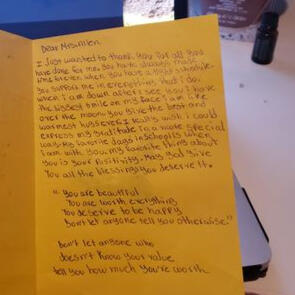 Dear Mrs.Allen
I just wanted to thank you for all you
have done for me. you have always made
time for even when you have a tight schedule.
You support me in everything that I do.
when i am down after i see you i have
the biggest smile on my face i am like
over the moon. you give the best and
warmest hugs ever. I really wish i could
express my gratitude in a more special
way. My favorite days in School is when
i am with you. my favorite thing about
you is your positivity. May God give
You all the blessings you deserve it.
"You are beautiful
You are worth everything
You deserve to be happy
Don't let anyone tell you otherwise."
Don't let anyone who
doesn't know your value
tell you how much you're worth